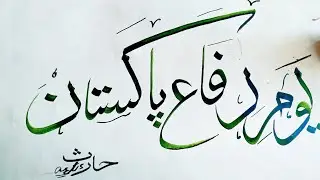 یومِ دفاع پاکستان
حارث